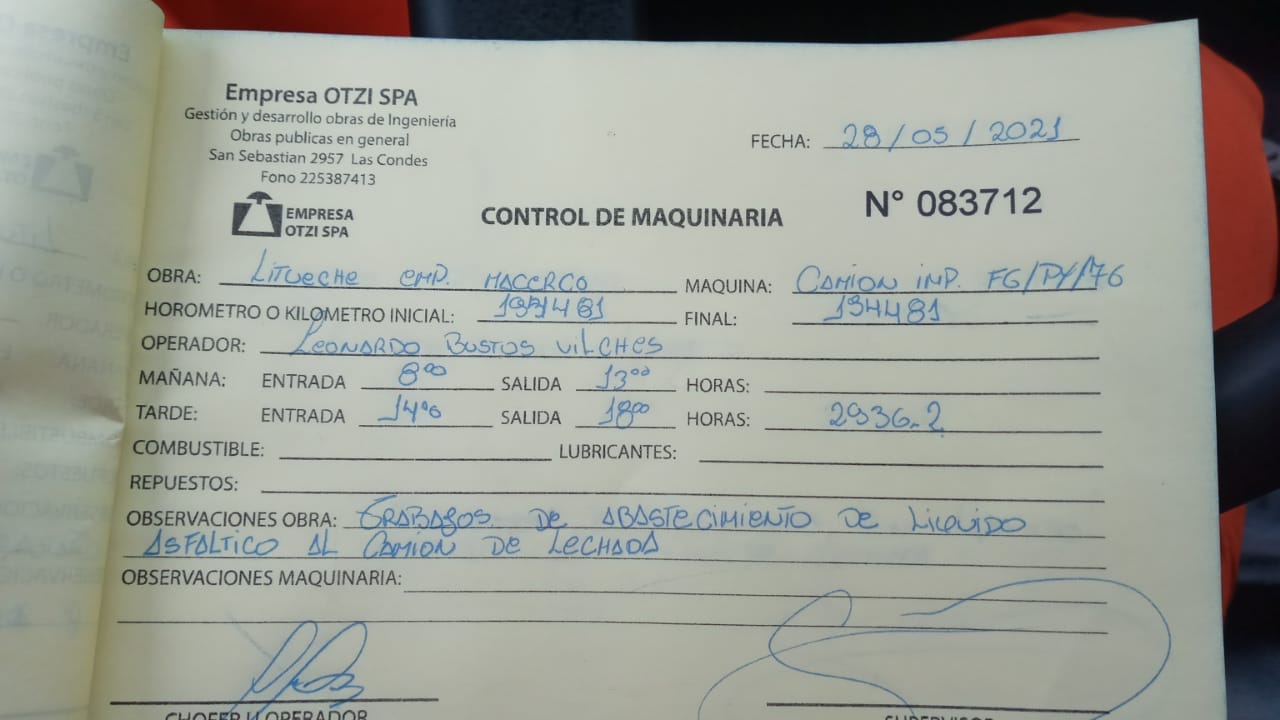 Empresa OTZI SPA
Gestión y desarrollo obras de Ingeniería
Obras publicas en general
San Sebastian 2957 Las Condes
Fono 225387413
EMPRESA
OTZI SPA
FECHA: 28/05/2021
CONTROL DE MAQUINARIA
N° 083712
OBRA: LITUECHE EMP. MACERCO MAQUINA: CAMION IMP. FG/PY/76
HOROMETRO O KILOMETRO INICIAL: 194481 FINAL: 194481
OPERADOR: LEONARDO BUSTOS VILCHES
MAÑANA: ENTRADA 8°° SALIDA 13°° HORAS:
TARDE: ENTRADA 14°° SALIDA 18°° HORAS: 2936.2
COMBUSTIBLE: LUBRICANTES:
REPUESTOS:
OBSERVACIONES OBRA: TRABAJOS DE ABASTECIMIENTO DE LIQUIDO
ASFALTICO AL CAMION DE LECHADA
OBSERVACIONES MAQUINARIA:
CHOFER U OPERADOR SUPERVISOR